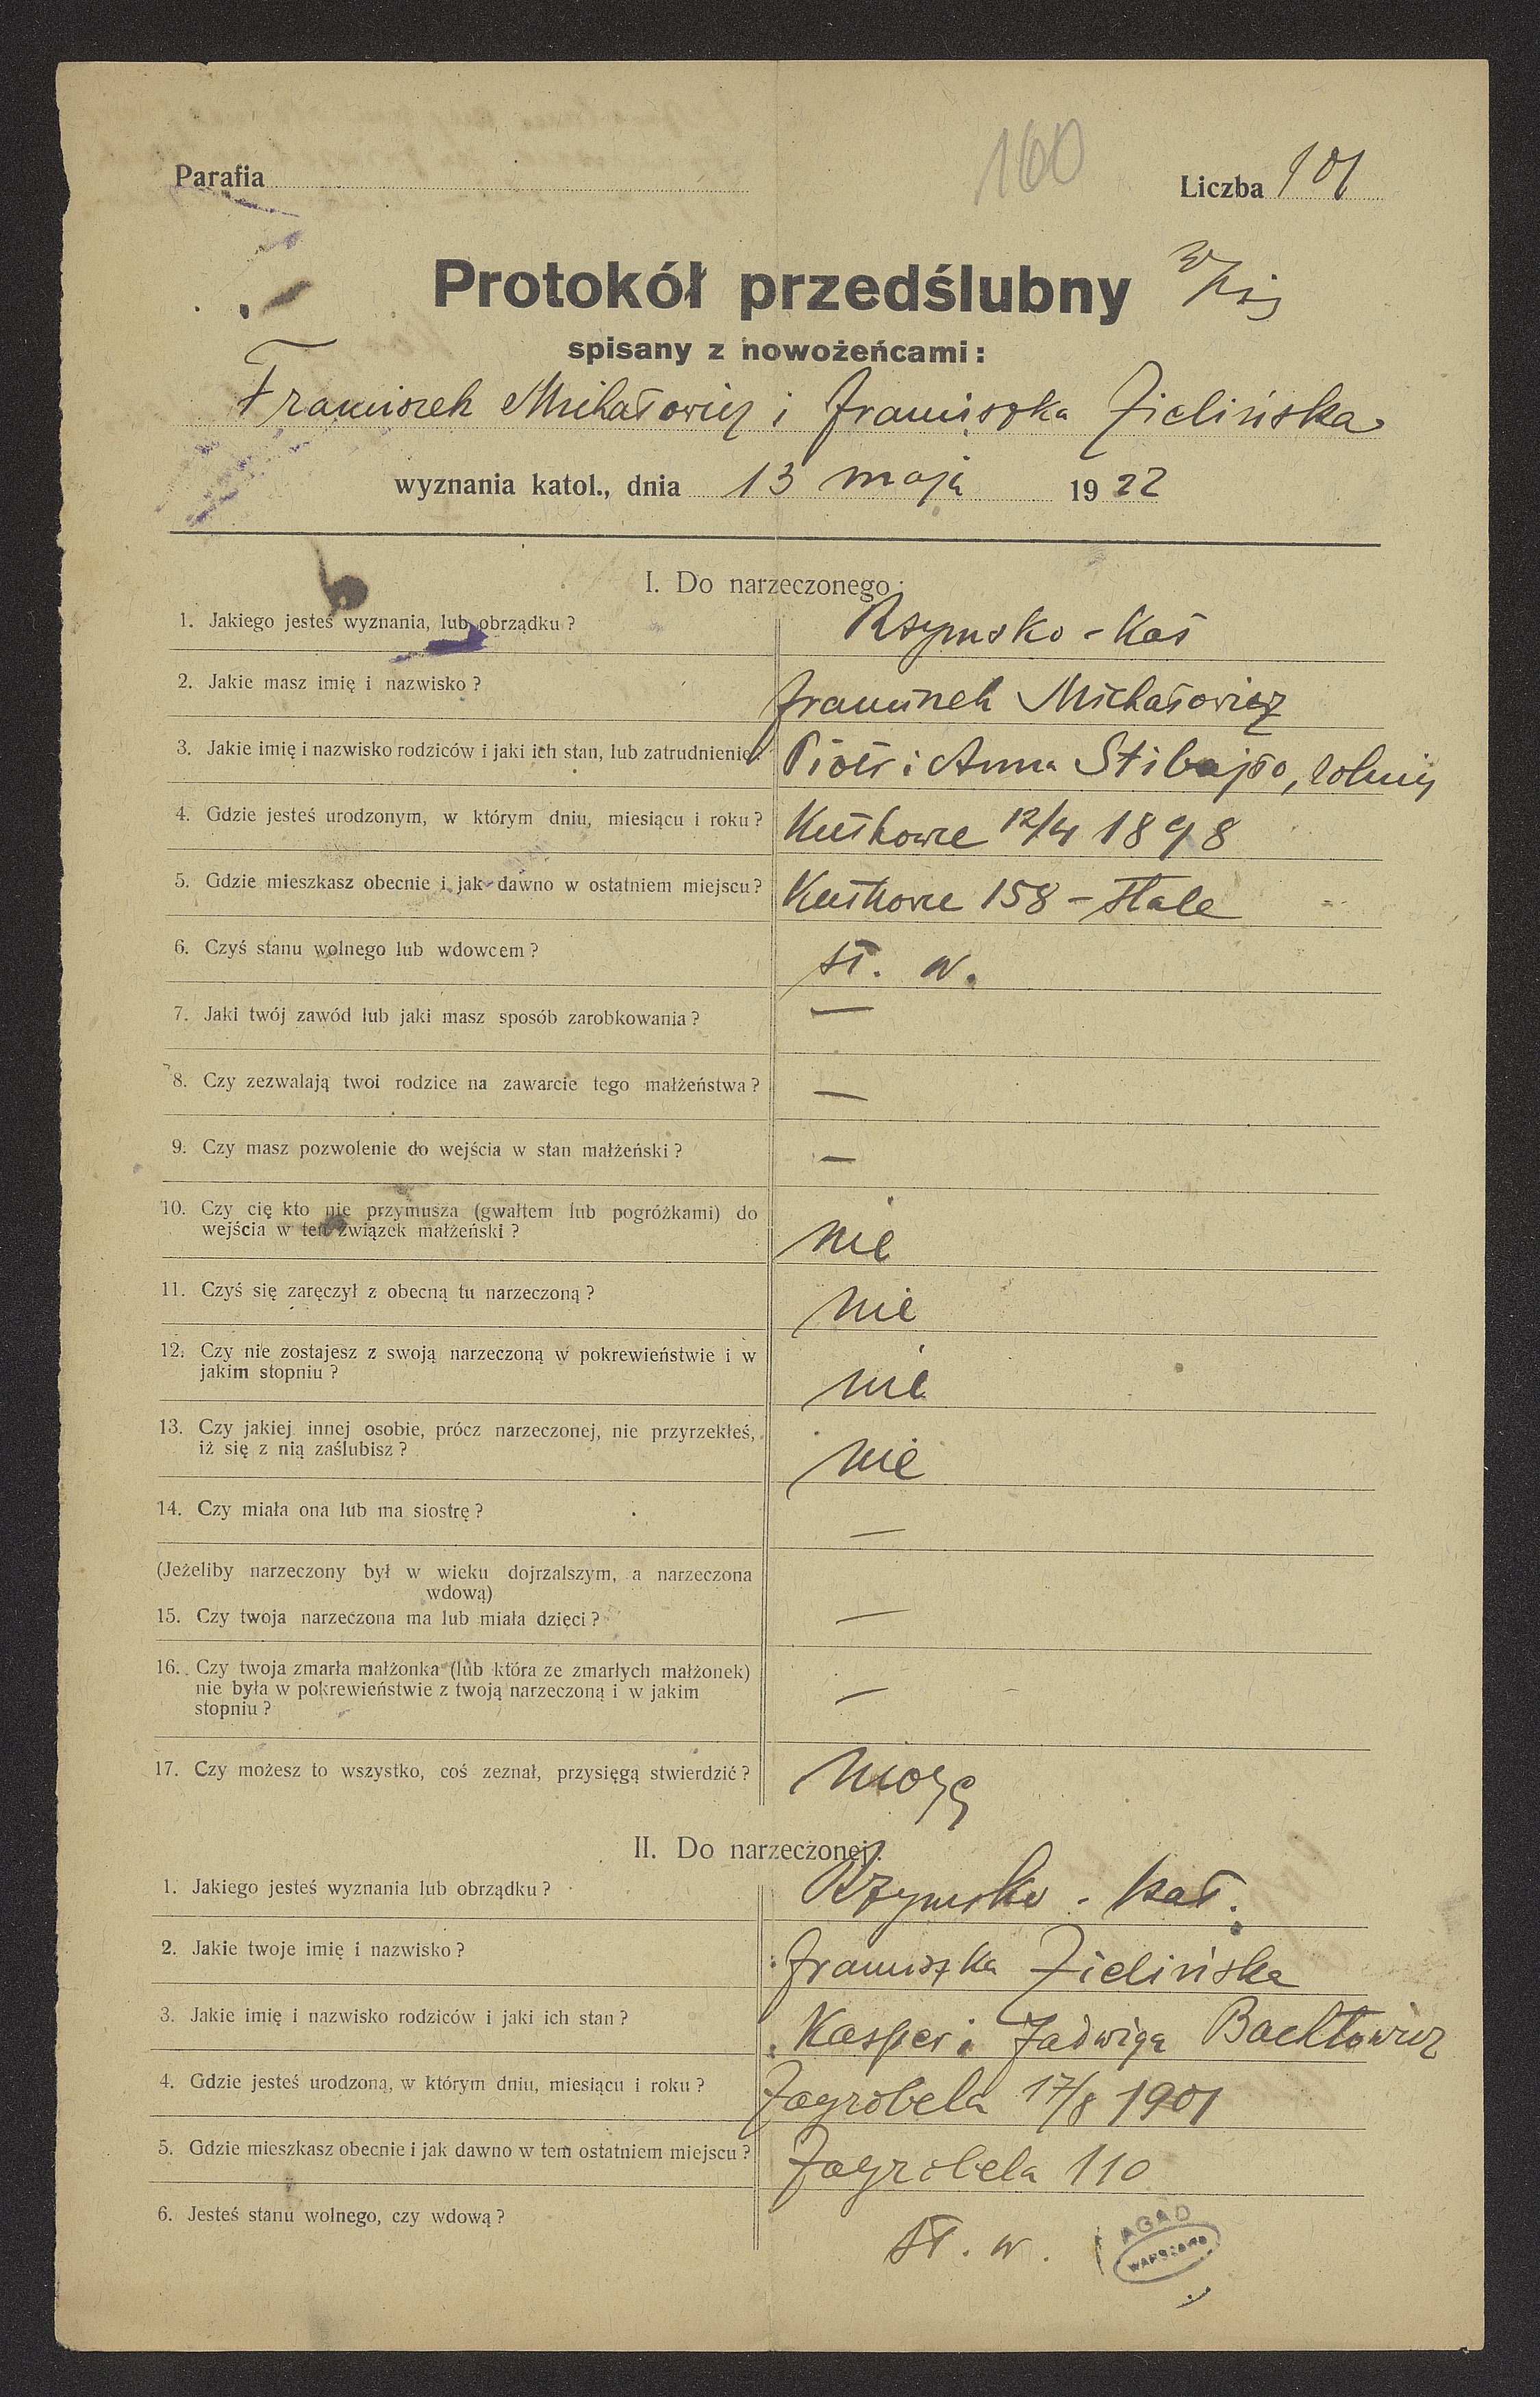 160
Parafia
Liczba 101
Protokół przedślubny
spisany z nowożeńcami:
Franciszek Michałowicz i Franciszka Zielińska
wyznania katol., dnia 13 maja 1922
I. Do narzeczonego:
1. Jakiego jesteś wyznania, lub obrządku? Rzymsko-Kat
2. Jakie masz imię i nazwisko? Franciszek Michałowicz
3. Jakie imię i nazwisko rodziców i jaki ich stan, lub zatrudnienie? Piotr i Anna, rolnicy
4. Gdzie jesteś urodzonym, w którym dniu, miesiącu i roku? Kutkowce 12/4 1898
5. Gdzie mieszkasz obecnie i jak dawno w ostatniem miejscu? Kutkowce 158 - stale
6. Czyś stanu wolnego lub wdowcem? st. w.
7. Jaki twój zawód lub jaki masz sposób zarobkowania? —
8. Czy zezwalają twoi rodzice na zawarcie tego małżeństwa? —
9. Czy masz pozwolenie do wejścia w stan małżeński? —
10. Czy cię kto nie przymusza (gwałtem lub pogróżkami) do
wejścia w ten związek małżeński? nie
11. Czyś się zaręczył z obecną tu narzeczoną? nie
12. Czy nie zostajesz z swoją narzeczoną w pokrewieństwie i w
jakim stopniu? nie
13. Czy jakiej innej osobie, prócz narzeczonej, nie przyrzekłeś,
iż się z nią zaślubisz? nie
14. Czy miała ona lub ma siostrę? —
(Jeżeliby narzeczony był w wieku dojrzalszym, a narzeczona
wdową)
15. Czy twoja narzeczona ma lub miała dzieci? —
16. Czy twoja zmarła małżonka (lub która ze zmarłych małżonek)
nie była w pokrewieństwie z twoją narzeczoną i w jakim
stopniu? —
17. Czy możesz to wszystko, coś zeznał, przysięgą stwierdzić? mogę
II. Do narzeczonej:
1. Jakiego jesteś wyznania lub obrządku? Rzymsko-kat.
2. Jakie twoje imię i nazwisko? Franciszka Zielińska
3. Jakie imię i nazwisko rodziców i jaki ich stan? Kasper i Jadwiga
4. Gdzie jesteś urodzoną, w którym dniu, miesiącu i roku? Zagrobela 17/8 1901
5. Gdzie mieszkasz obecnie i jak dawno w tem ostatniem miejscu? Zagrobela 110
6. Jesteś stanu wolnego, czy wdową? st. w.
AGAD
WARSZAWA